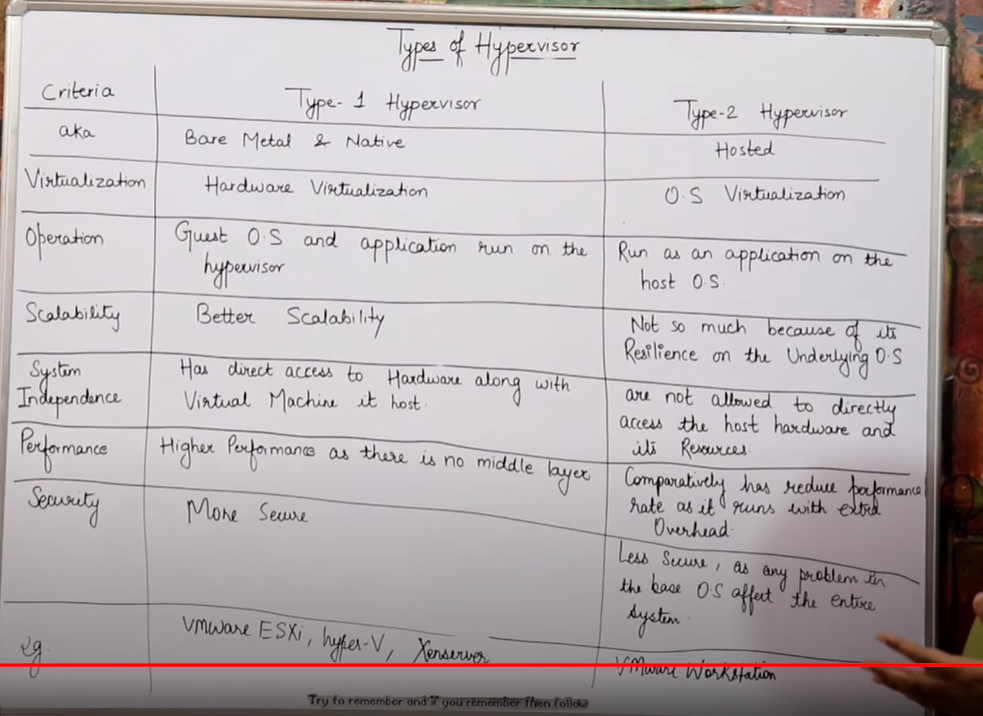 Types of Hypervisor
Criteria
Type-1 Hypervisor
Type-2 Hypervisor
aka
Bare Metal & Native
Hosted
Virtualization
Hardware Virtualization
O.S Virtualization
Operation
Guest O.S and application run on the
hypervisor
Run as an application on the
host O.S.
Scalability
Better Scalability
Not so much because of its
Resilience on the Underlying O.S
System
Independence
Has direct access to Hardware along with
Virtual Machine it host.
are not allowed to directly
access the host hardware and
its Resources.
Performance
Higher Performance as there is no middle layer
Comparatively has reduce performance
rate as it runs with extra
Overhead.
Security
More Secure
Less Secure, as any problem in
the base O.S affect the entire
System.
eg.
VMware ESXi, hyper-V, Xenserver
VMware Workstation
Try to remember and if you remember then follow